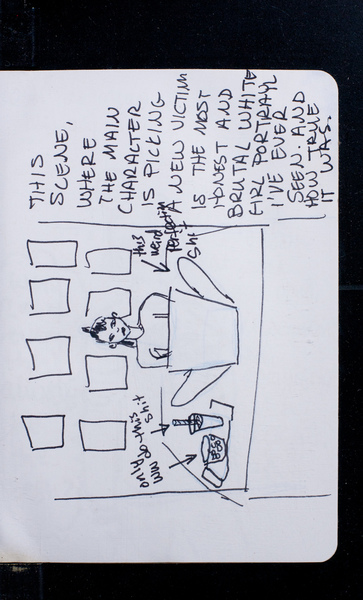 THIS
SCENE,
WHERE
THE MAIN
CHARACTER
IS PICKING
A NEW VICTIM
IS THE MOST
HONEST AND
BRUTAL WHITE
GIRL PORTRAYL
I'VE EVER
SEEN. AND
HOW TRUE
IT WAS.
this
weird
perfection
shit
only do this
shit